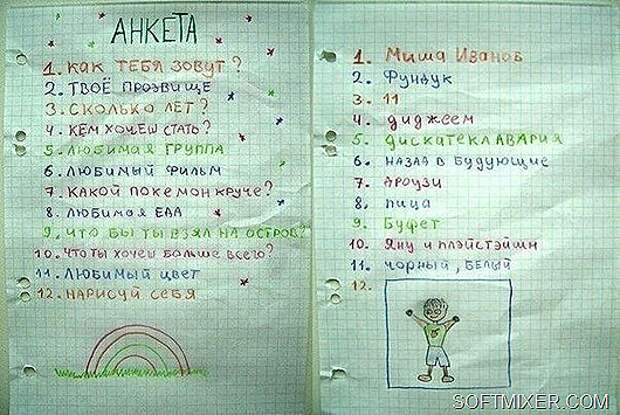 АНКЕТА
1. КАК ТЕБЯ ЗОВУТ?
2. ТВОЁ ПРОЗВИЩЕ
3. СКОЛЬКО ЛЕТ?
4. КЕМ ХОЧЕШ СТАТЬ?
5. ЛЮБИМАЯ ГРУППА
6. ЛЮБИМЫЙ ФИЛЬМ
7. КАКОЙ ПОКЕМОН КРУЧЕ?
8. ЛЮБИМАЯ ЕДА
9. ЧТО БЫ ТЫ ВЗЯЛ НА ОСТРОВ?
10. ЧТО ТЫ ХОЧЕШ БОЛЬШЕ ВСЕГО?
11. ЛЮБИМЫЙ ЦВЕТ
12. НАРИСУЙ СЕБЯ
1. Миша Иванов
2. Фундук
3. 11
4. диджеем
5. ДИСКАТЕКЛАВАРИЯ
6. НАЗАД В БУДУЮЩИЕ
7. ДРОУЗИ
8. ПИЦА
9. Буфет
10. Яну и плэйстэйшн
11. чорный, БЕЛЫЙ
12.
SOFTMIXER.COM